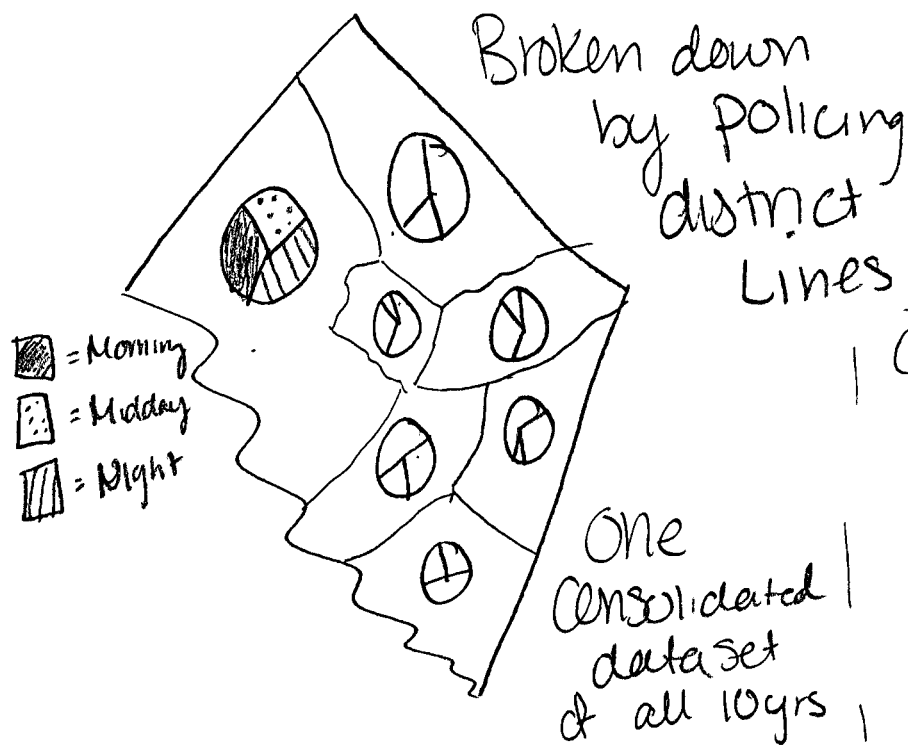 Broken down
by policing
district
Lines
= Morning
= Midday
= Night
One
Consolidated
dataset
of all 10yrs